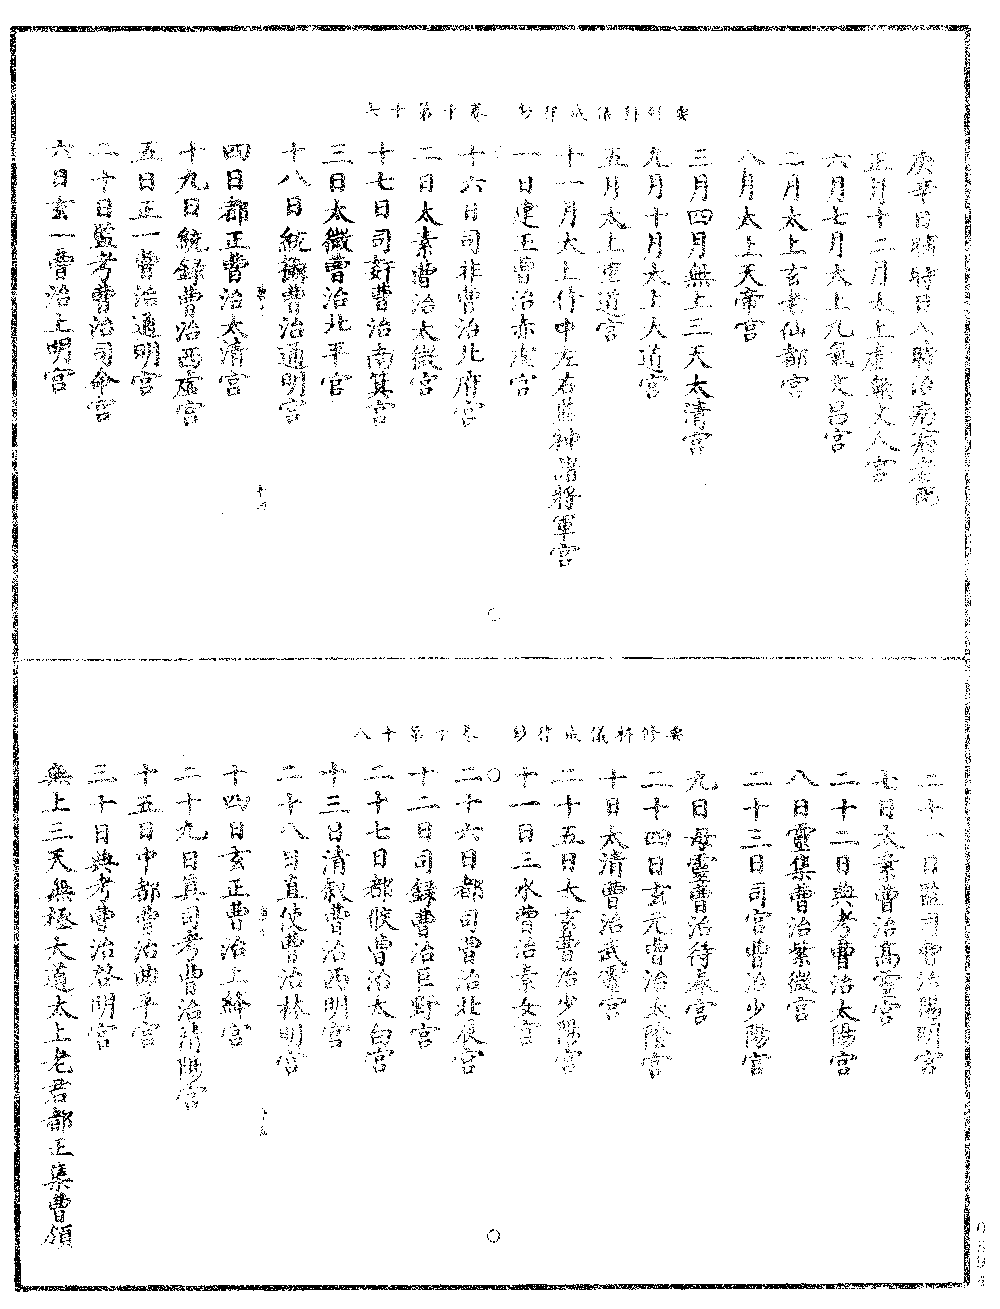 要修科儀戒律鈔 卷十第十七
庚辛日晡時日入時治病病者死
正月十二月太上虛無丈人宮
六月七月太上九氣文昌宮
二月太上玄老仙都宮
八月太上天帝宮
三月四月無上三天太清宮
九月十月太上大道宮
五月太上靈道宮
十一月太上侍中左右監神諸將軍宮
一日建王曹治赤虛宮
十六日司非曹治北府宮
二日太素曹治太微宮
十七日司奸曹治南箕宮
三日太微曹治北平宮
十八日統攝曹治通明宮
四日都正曹治太清宮
十九日統錄曹治西虛宮
五日正一曹治通明宮
二十日監考曹治司命宮
六日玄一曹治上明宮
要修科儀戒律鈔 卷十第十八
二十一日監司曹治陽明宮
七日太素曹治高靈宮
二十二日典考曹治太陽宮
八日靈集曹治紫微宮
二十三日司官曹治少陽宮
九日母靈曹治待泰宮
二十四日玄元曹治太陰宮
十日太清曹治武靈宮
二十五日太玄曹治少陽宮
十一日三水曹治素女宮
二十六日都司曹治北辰宮
十二日司錄曹治巨野宮
二十七日都候曹治太白宮
十三日清叙曹治西明宮
二十八日直使曹治林明宮
十四日玄正曹治上絳宮
二十九日真司考曹治清陽宮
十五日中都曹治曲平宮
三十日典考曹治啓明宮
無上三天無極大道太上老君都正集曹領